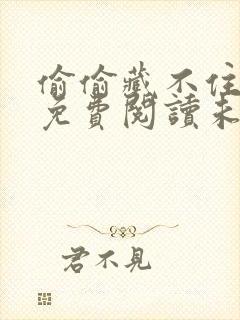 偷偷藏不住
免費閱讀未
君不見